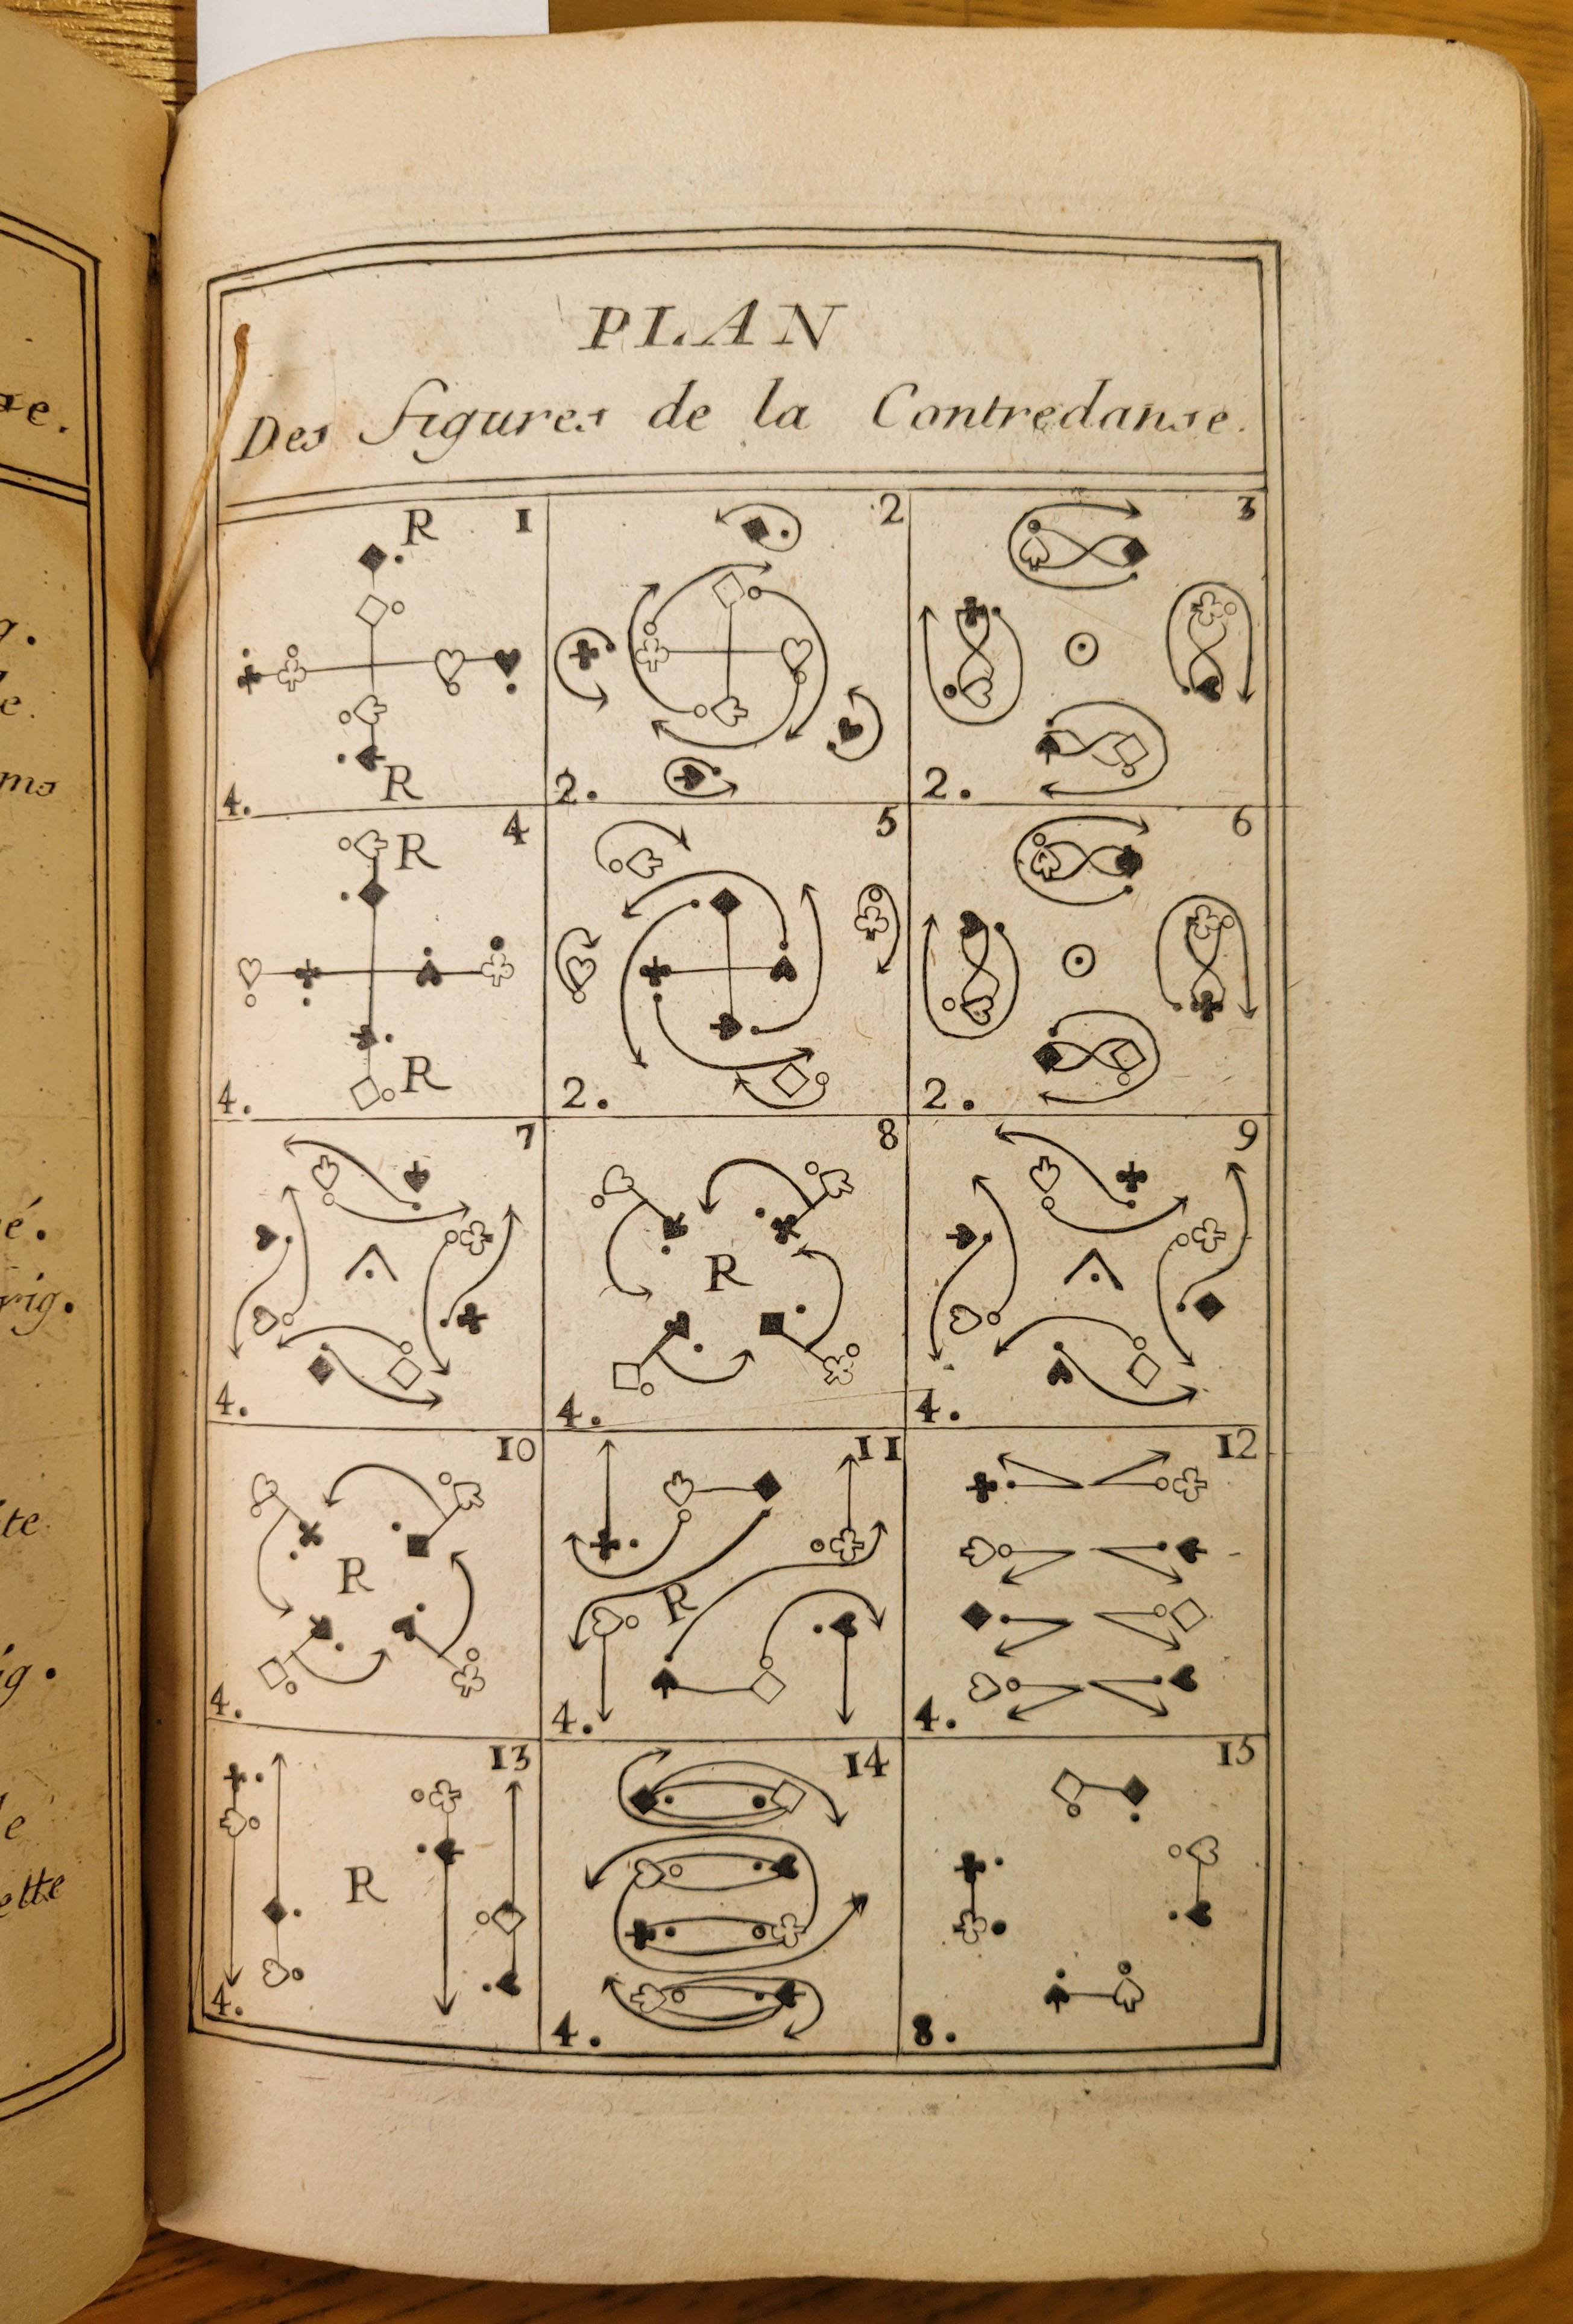 PLAN
Des figures de la Contredanse.
R 1 2 3
R
4. 2. 2.
R 4 5 6
R
4. 2. 2.
7 8 9
R
4. 4. 4.
10 11 12
R R
4. 4. 4.
13 14 15
R
4. 4. 8.
e.
ms
é.
rig.
te
ig.
le
ette